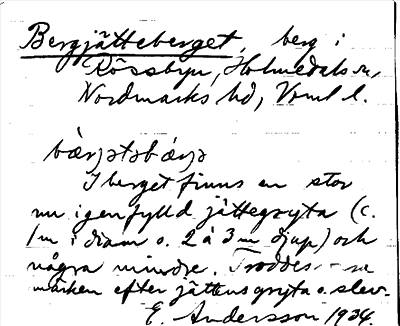 Bergjätteberget, berg i
Rössbyn, Holmedals sn,
Nordmarks hd, Vrml l.
bæ̀rjǝtsbǽrjǝ
I berget finns en stor
nu igenfylld jättegryta (c.
1 m i diam o. 2 à 3 m djup) och
några mindre. Troddes
märken efter jättens gryta o. slev.
E. Andersson 1934.